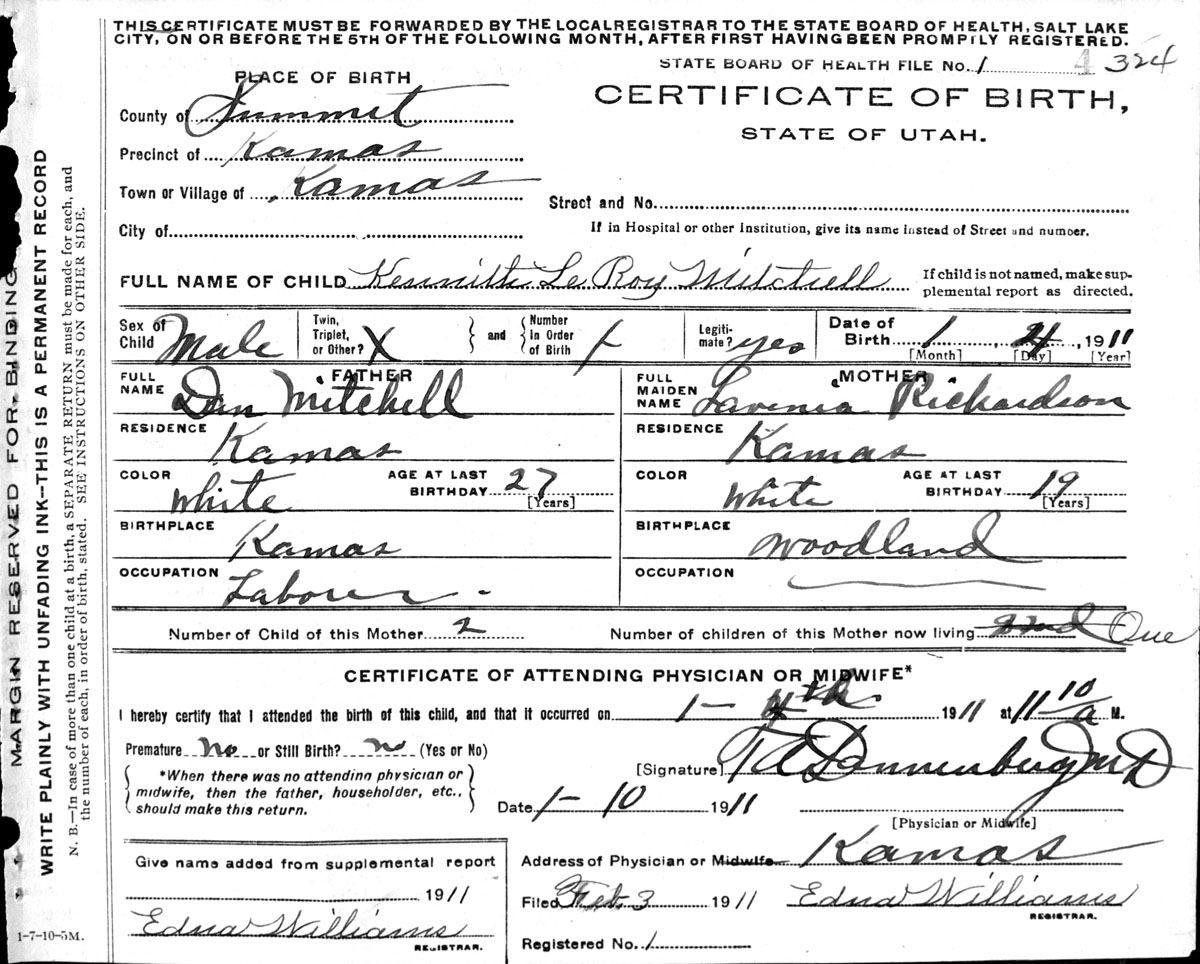 THIS CERTIFICATE MUST BE FORWARDED BY THE LOCAL REGISTRAR TO THE STATE BOARD OF HEALTH, SALT LAKE
CITY, ON OR BEFORE THE 5TH OF THE FOLLOWING MONTH, AFTER FIRST HAVING BEEN PROMPTLY REGISTERED.
PLACE OF BIRTH
STATE BOARD OF HEALTH FILE No. 1 4 324
County of Summit
CERTIFICATE OF BIRTH,
STATE OF UTAH.
Precinct of Kamas
Town or Village of Kamas
Street and No.
City of
If in Hospital or other Institution, give its name instead of Street and number.
FULL NAME OF CHILD Kennith Le Roy Mitchell
If child is not named, make sup-
plemental report as directed.
Sex of Child Male
Twin, Triplet, or Other? X
and
Number in Order of Birth /
Legiti-mate? yes
Date of Birth 1 4, 1911
[Month] [Day] [Year]
FATHER
FULL NAME Dan Mitchell
RESIDENCE Kamas
COLOR White
AGE AT LAST BIRTHDAY 27
[Years]
BIRTHPLACE Kamas
OCCUPATION Laborer -
MOTHER
FULL MAIDEN NAME Lavenia Richardson
RESIDENCE Kamas
COLOR White
AGE AT LAST BIRTHDAY 19
[Years]
BIRTHPLACE Woodland
OCCUPATION
Number of Child of this Mother 2
Number of children of this Mother now living One
CERTIFICATE OF ATTENDING PHYSICIAN OR MIDWIFE*
I hereby certify that I attended the birth of this child, and that it occurred on 1 - 4th 1911 at 11 10 a M.
Premature no or Still Birth? no (Yes or No)
*When there was no attending physician or
midwife, then the father, householder, etc.,
should make this return.
[Signature] T A Dannenberg M D
Date 1 - 10 1911
[Physician or Midwife]
Give name added from supplemental report
1911
Edna Williams
REGISTRAR.
Address of Physician or Midwife Kamas
Filed Feb. 3 1911 Edna Williams
REGISTRAR.
Registered No. 1
1-7-10-5M.
MARGIN RESERVED FOR BINDING
WRITE PLAINLY WITH UNFADING INK—THIS IS A PERMANENT RECORD
N. B.—In case of more than one child at a birth, a SEPARATE RETURN must be made for each, and
the number of each, in order of birth, stated. SEE INSTRUCTIONS ON OTHER SIDE.